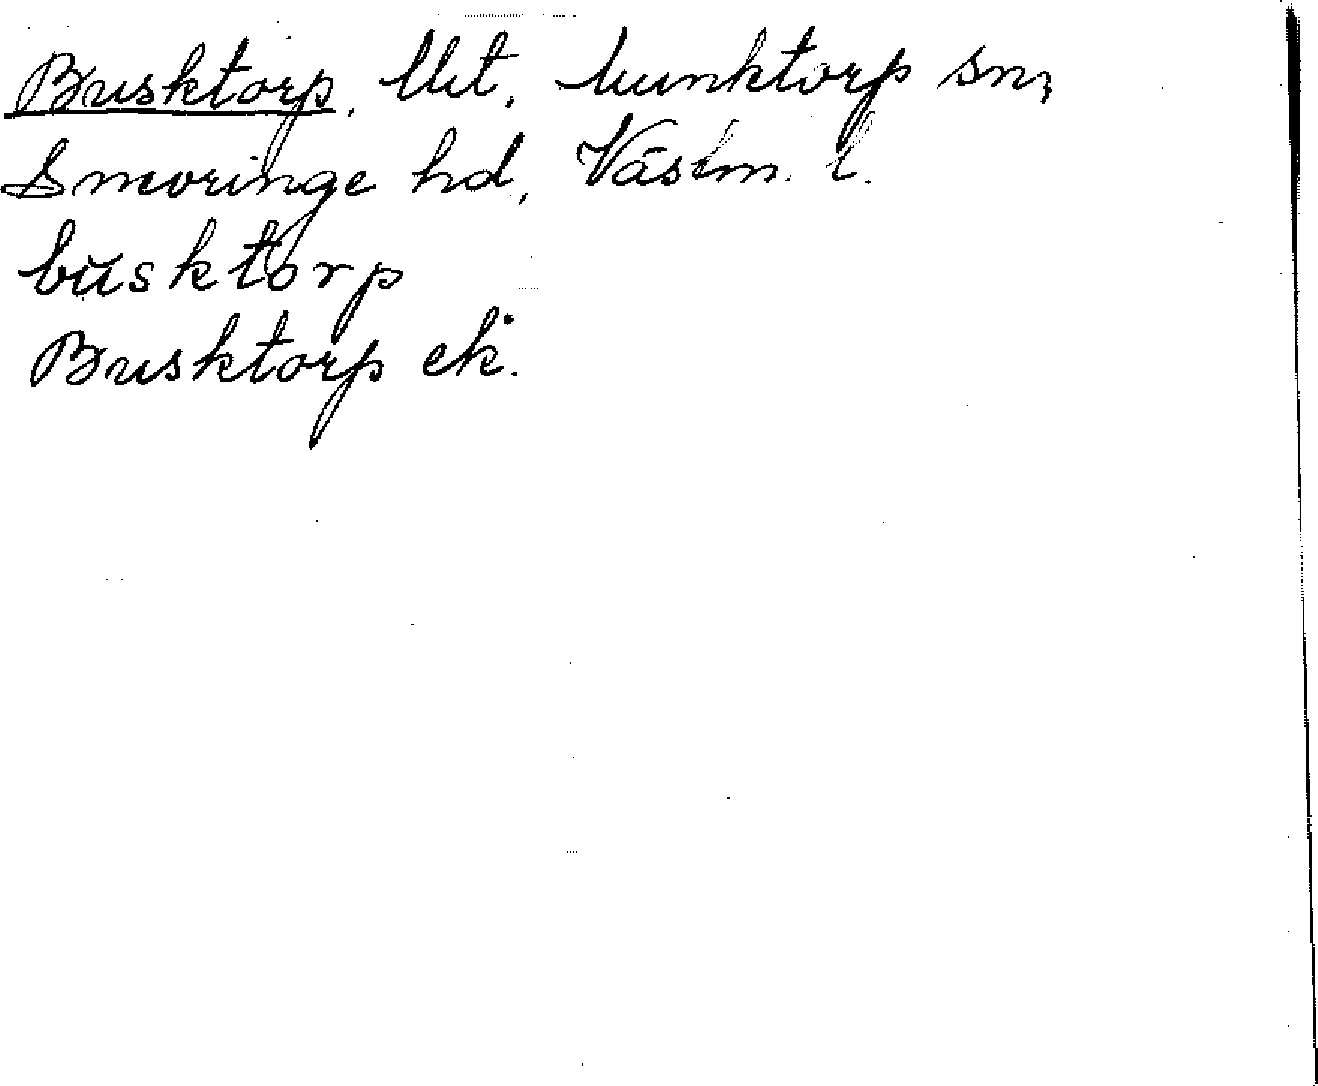 Busktorp, lht, Munktorp sn,
Snevringe hd, Västm. l.
busktorp
Busktorp ek.